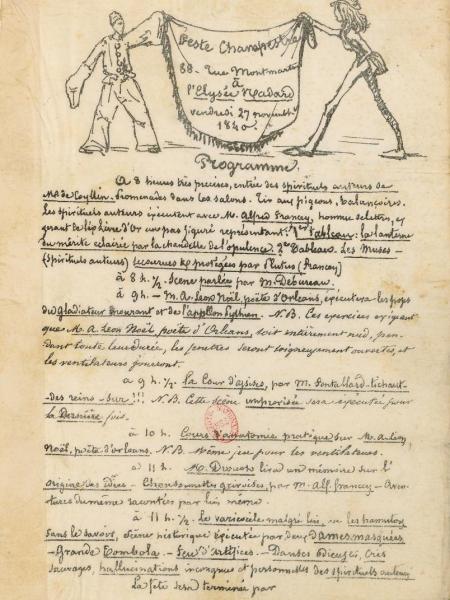 Feste Champestre
88. Rue Montmartre
à
l'Elysée Madard
vendredi 27 novembre
1840.
Programme.
A 8 heures très précises, entrée des spirituels auteurs de
Mr de Coyllin. Promenades dans les salons. Tir aux pigeons, balançoires.
Les spirituels auteurs exécutent avec M. Alfred Francey, homme de lettres, et
gérant de un pas figuré représentant: 1er Tableau: la lanterne
du mérite éclairée par la chandelle de l'opulence. 2me Tableau. Les Muses -
(spirituels auteurs) secourues & protégées par Plutus (Francey)
à 8 h. 1/2 Scène parlée par M. Debureau.
à 9 h. - M. A. Leon Noël, poëte d'Orleans, exécutera les poses
du gladiateur mourant et de l'appollon Python. N.B. Ces exercices exigeant
que M. A. Leon Noël, poëte d'Orleans, soit entièrement nud, pen-
dant toute leur durée, les fenêtres seront soigneusement ouvertes et
les ventilateurs joueront.
a 9 h. 1/2. la Cour d'assises, par M. Pontallard-lichaut-
-des reins-sur!!! N.B. Cette scène improvisée sera exécutée pour
la Dernière fois.
à 10 h. Cours d'anatomie pratique sur M. A. Leon
Noël, poëte d'Orleans. N.B. Même jeu pour les ventilateurs.
a 11 h. M. lira un mémoire sur l'
origine des idées - Chansonnettes grivoises, par M. Alf. Francey - Aven-
tures du même racontées par lui même.
à 11 h. 1/2. Le malgré lui, ou les
sans le savoir, scènes historiques exécutées par deux Dames masquées
- Grande Tombola. - Feu d'artifices - Danses très
sauvages, hallucinations incongrues et personnelles des spirituels auteurs
La fête sera terminée par